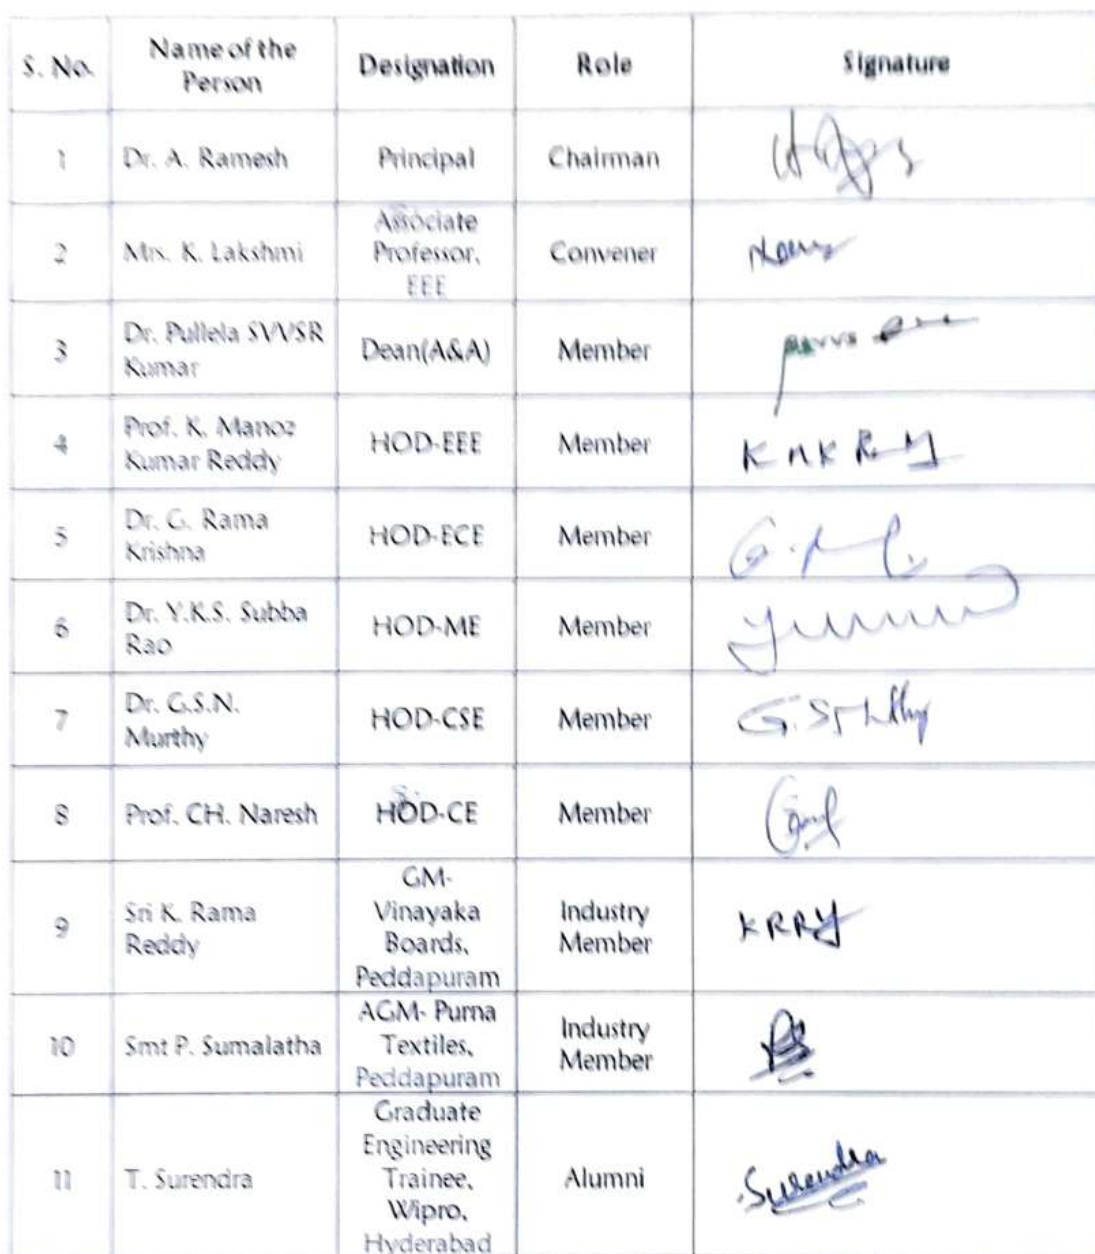 S. No. Name of the Person Designation Role Signature
1 Dr. A. Ramesh Principal Chairman
2 Mrs. K. Lakshmi Associate Professor, EEE Convener
3 Dr. Pullela SVVSR Kumar Dean(A&A) Member
4 Prof. K. Manoz Kumar Reddy HOD-EEE Member K M K R
5 Dr. G. Rama Krishna HOD-ECE Member
6 Dr. Y.K.S. Subba Rao HOD-ME Member
7 Dr. G.S.N. Murthy HOD-CSE Member
8 Prof. CH. Naresh HOD-CE Member
9 Sri K. Rama Reddy GM- Vinayaka Boards, Peddapuram Industry Member KRRY
10 Smt P. Sumalatha AGM- Purna Textiles, Peddapuram Industry Member
11 T. Surendra Graduate Engineering Trainee, Wipro, Hyderabad Alumni Surendra